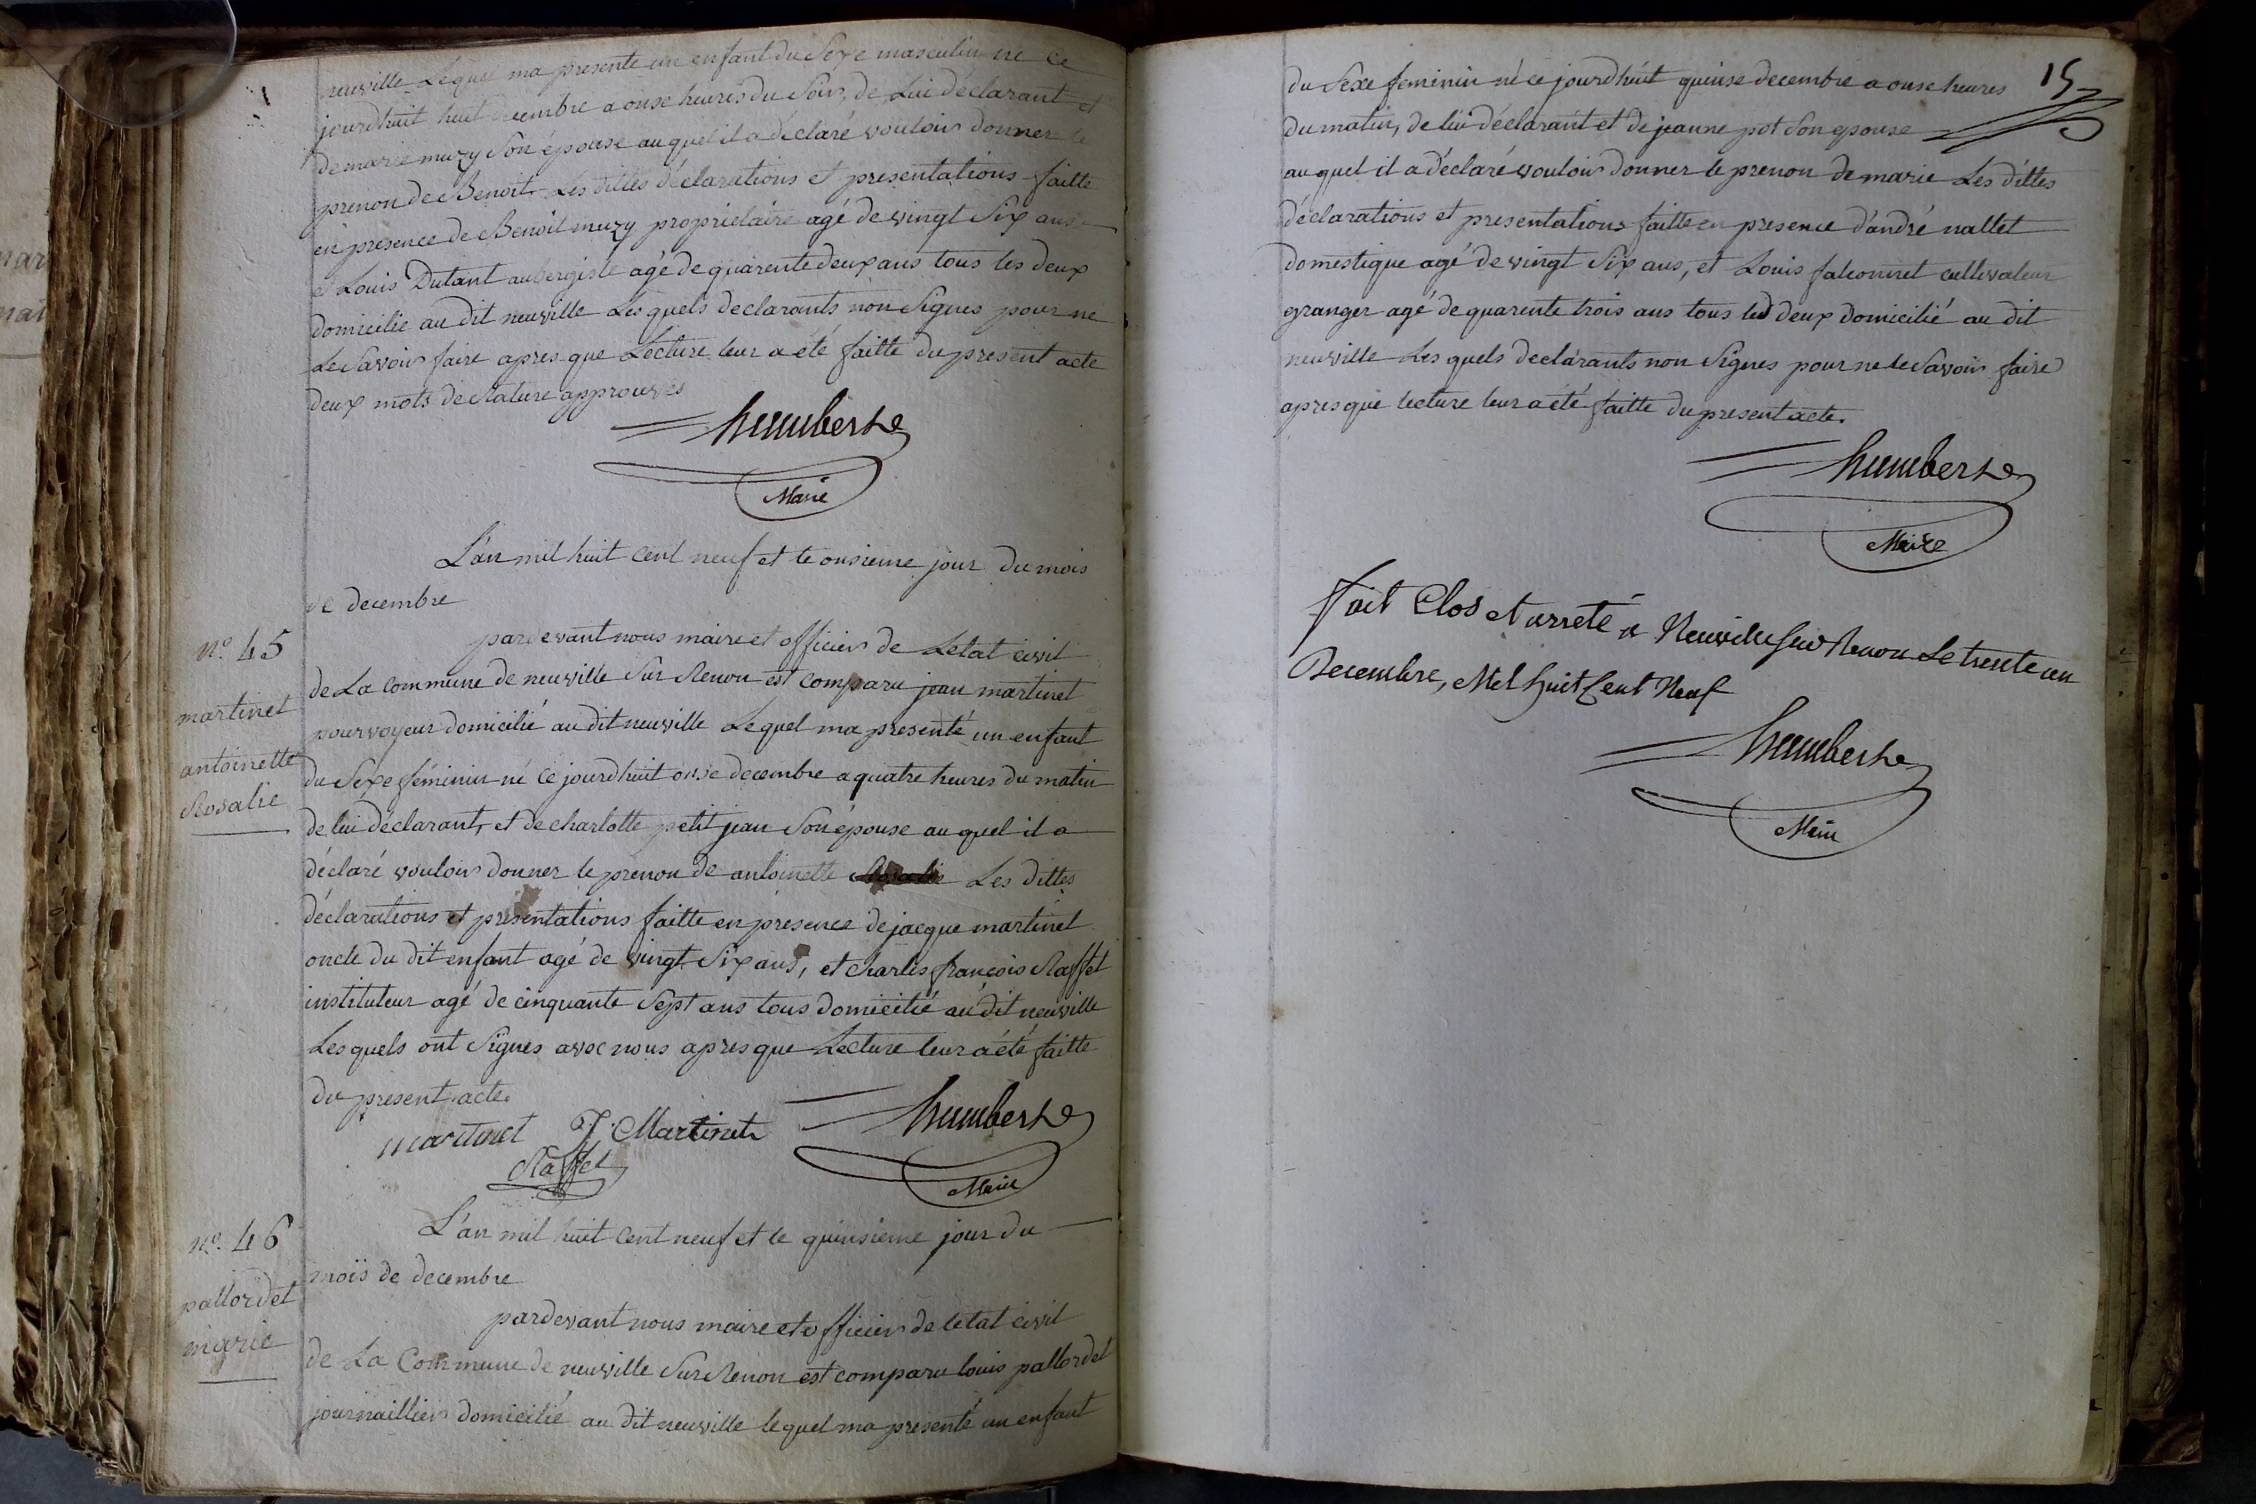 neuville Lequel ma presenté un enfant du Sexe masculin né Ce
jourdhuit huit decembre a onse heures du Soir, de Lui déclarant et
de marie muzy Son épouse auquel il a déclaré vouloir donner le
prenon de Benoit Les dittes déclarations et presentations faitte
en presence de Benoit muzy propriétaire agé de vingt Six ans
et Louis Dutant aubergiste agé de quarente deux ans tous les deux
domicilie au dit neuville Les quels declarants non Signes pour ne
Le Savoir faire apres que Lecture leur a été faitte du present acte
deux mots de Rature approuves
humbert
Maire
L'an mil huit cent neuf et le onsieme jour du mois
de decembre
n.º 45
martinet
antoinette
Rosalie
pardevant nous maire et officier de Letat civil
de La commune de neuville Sur Renon est comparu jean martinet
pourvoyeur domicilié au dit neuville Lequel ma presenté un enfant
du Sexe féminin né Ce jourdhuit onse decembre a quatre heures du matin
de lui déclarant, et de charlotte petit jean Son épouse au quel il a
déclaré vouloir donner le prenon de antoinette Rosalie Les dittes
déclarations et présentations faitte en presence de jacque martinet
oncle du dit enfant agé de vingt Six ans, et charles françois Raffet
instituteur agé de cinquante Sept ans tous domicilié au dit neuville
Les quels ont Signes avec nous apres que Lecture leur a été faitte
du present acte.
martinet J. Martinet humbert
Raffet
Maire
n.º 46
pallordet
marie
L'an mil huit Cent neuf et le quinsieme jour du
mois de decembre
pardevant nous maire et officier de letat civil
de La Commune de neuville Sur Renon est comparu louis pallordet
journaillier domicilié au dit neuville lequel ma presenté un enfant
15
du Sexe feminin né ce jourdhuit quinse decembre a onse heures
du matin, de lui déclarant et de jeanne pot Son epouse
auquel il a déclaré vouloir donner le prenon de marie Les dittes
déclarations et presentations faitte en presence d'andré nallet
domestique agé de vingt Six ans, et Louis falconnet cultivateur
granger agé de quarente trois ans tous les deux domicilié au dit
neuville Les quels declarants non Signes pour ne le Savoir faire
apres que lecture leur a été faitte du present acte.
humbert
Maire
fait Clos et arreté a Neuville sur Renon Le trente un
Decembre, Mil huit Cent Neuf
humbert
Maire